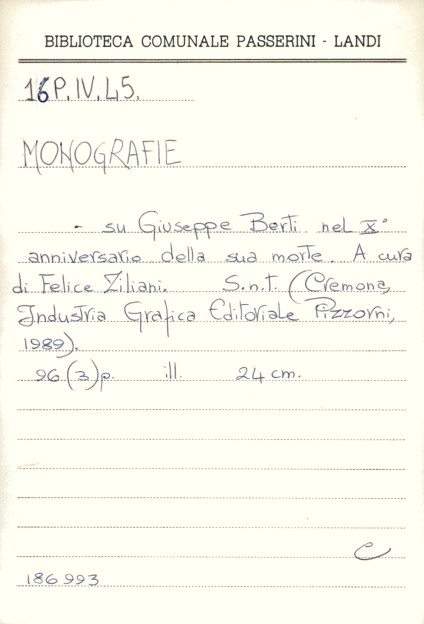 BIBLIOTECA COMUNALE PASSERINI - LANDI
16P.IV.45.
MONOGRAFIE
- su Giuseppe Berti nel X°
anniversario della sua morte. A cura
di Felice Ziliani. S.n.t. (Cremona,
Industria Grafica Editoriale Pizzorni,
1989).
96(3)p. ill. 24 cm.
C
186993